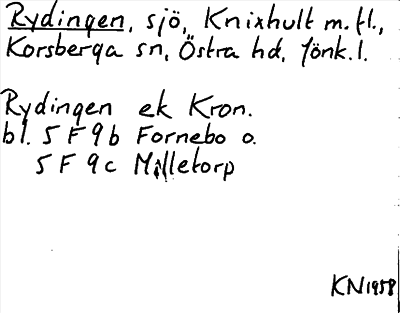 Rydingen, sjö, Knixhult m.fl.,
Korsberga sn, Östra hd, Jönk.l.
Rydingen ek Kron.
bl. 5 F 9 b Fornebo o.
5 F 9 c Milletorp
KN 1958